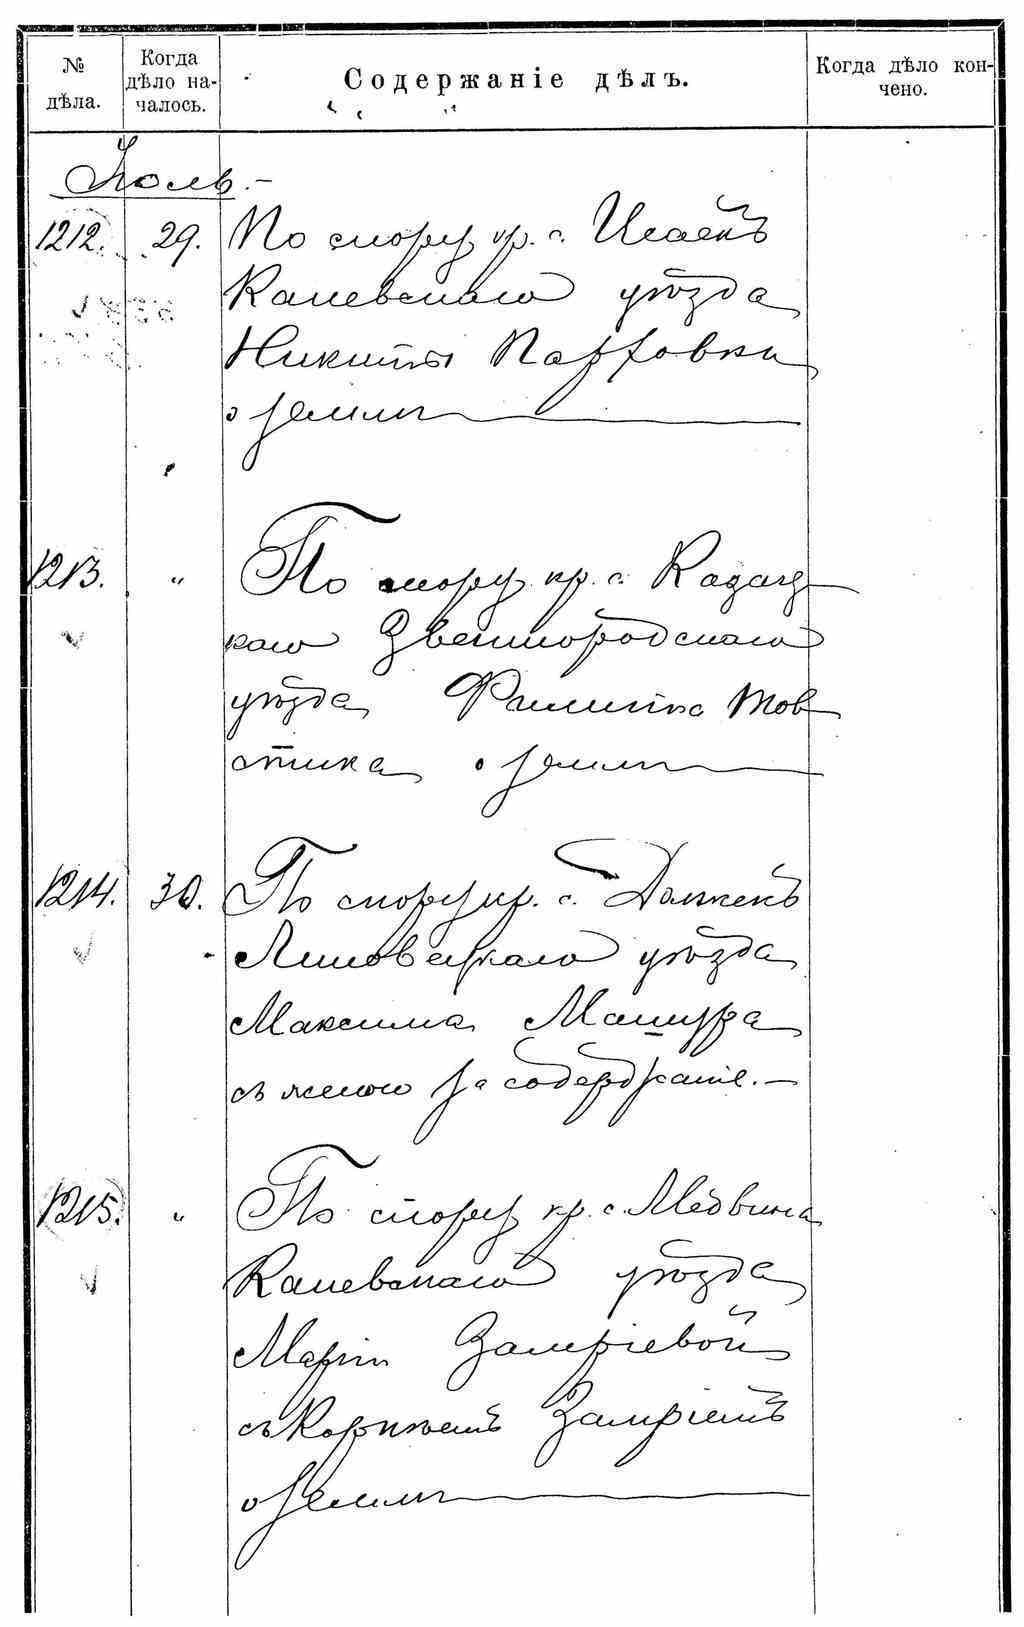 № дѣла.
Когда дѣло началось.
Содержаніе дѣлъ.
Когда дѣло кончено.
Іюль.-
1212. 29. По спору кр. с. Исаекъ
Каневскаго уѣзда
Никиты
о землѣ
1213. " По спору кр. с. Казац
каго Звенигородскаго
уѣзда Филиппа Тов
стика о землѣ
1214. 30. По спору кр. с. Должекъ
Липовецкаго уѣзда
Максима
съ женою за содержаніе.-
1215. " По спору кр. с. Медвина
Каневскаго уѣзда
Маріи Замріевой
съ Корнѣемъ Замріемъ
о землѣ